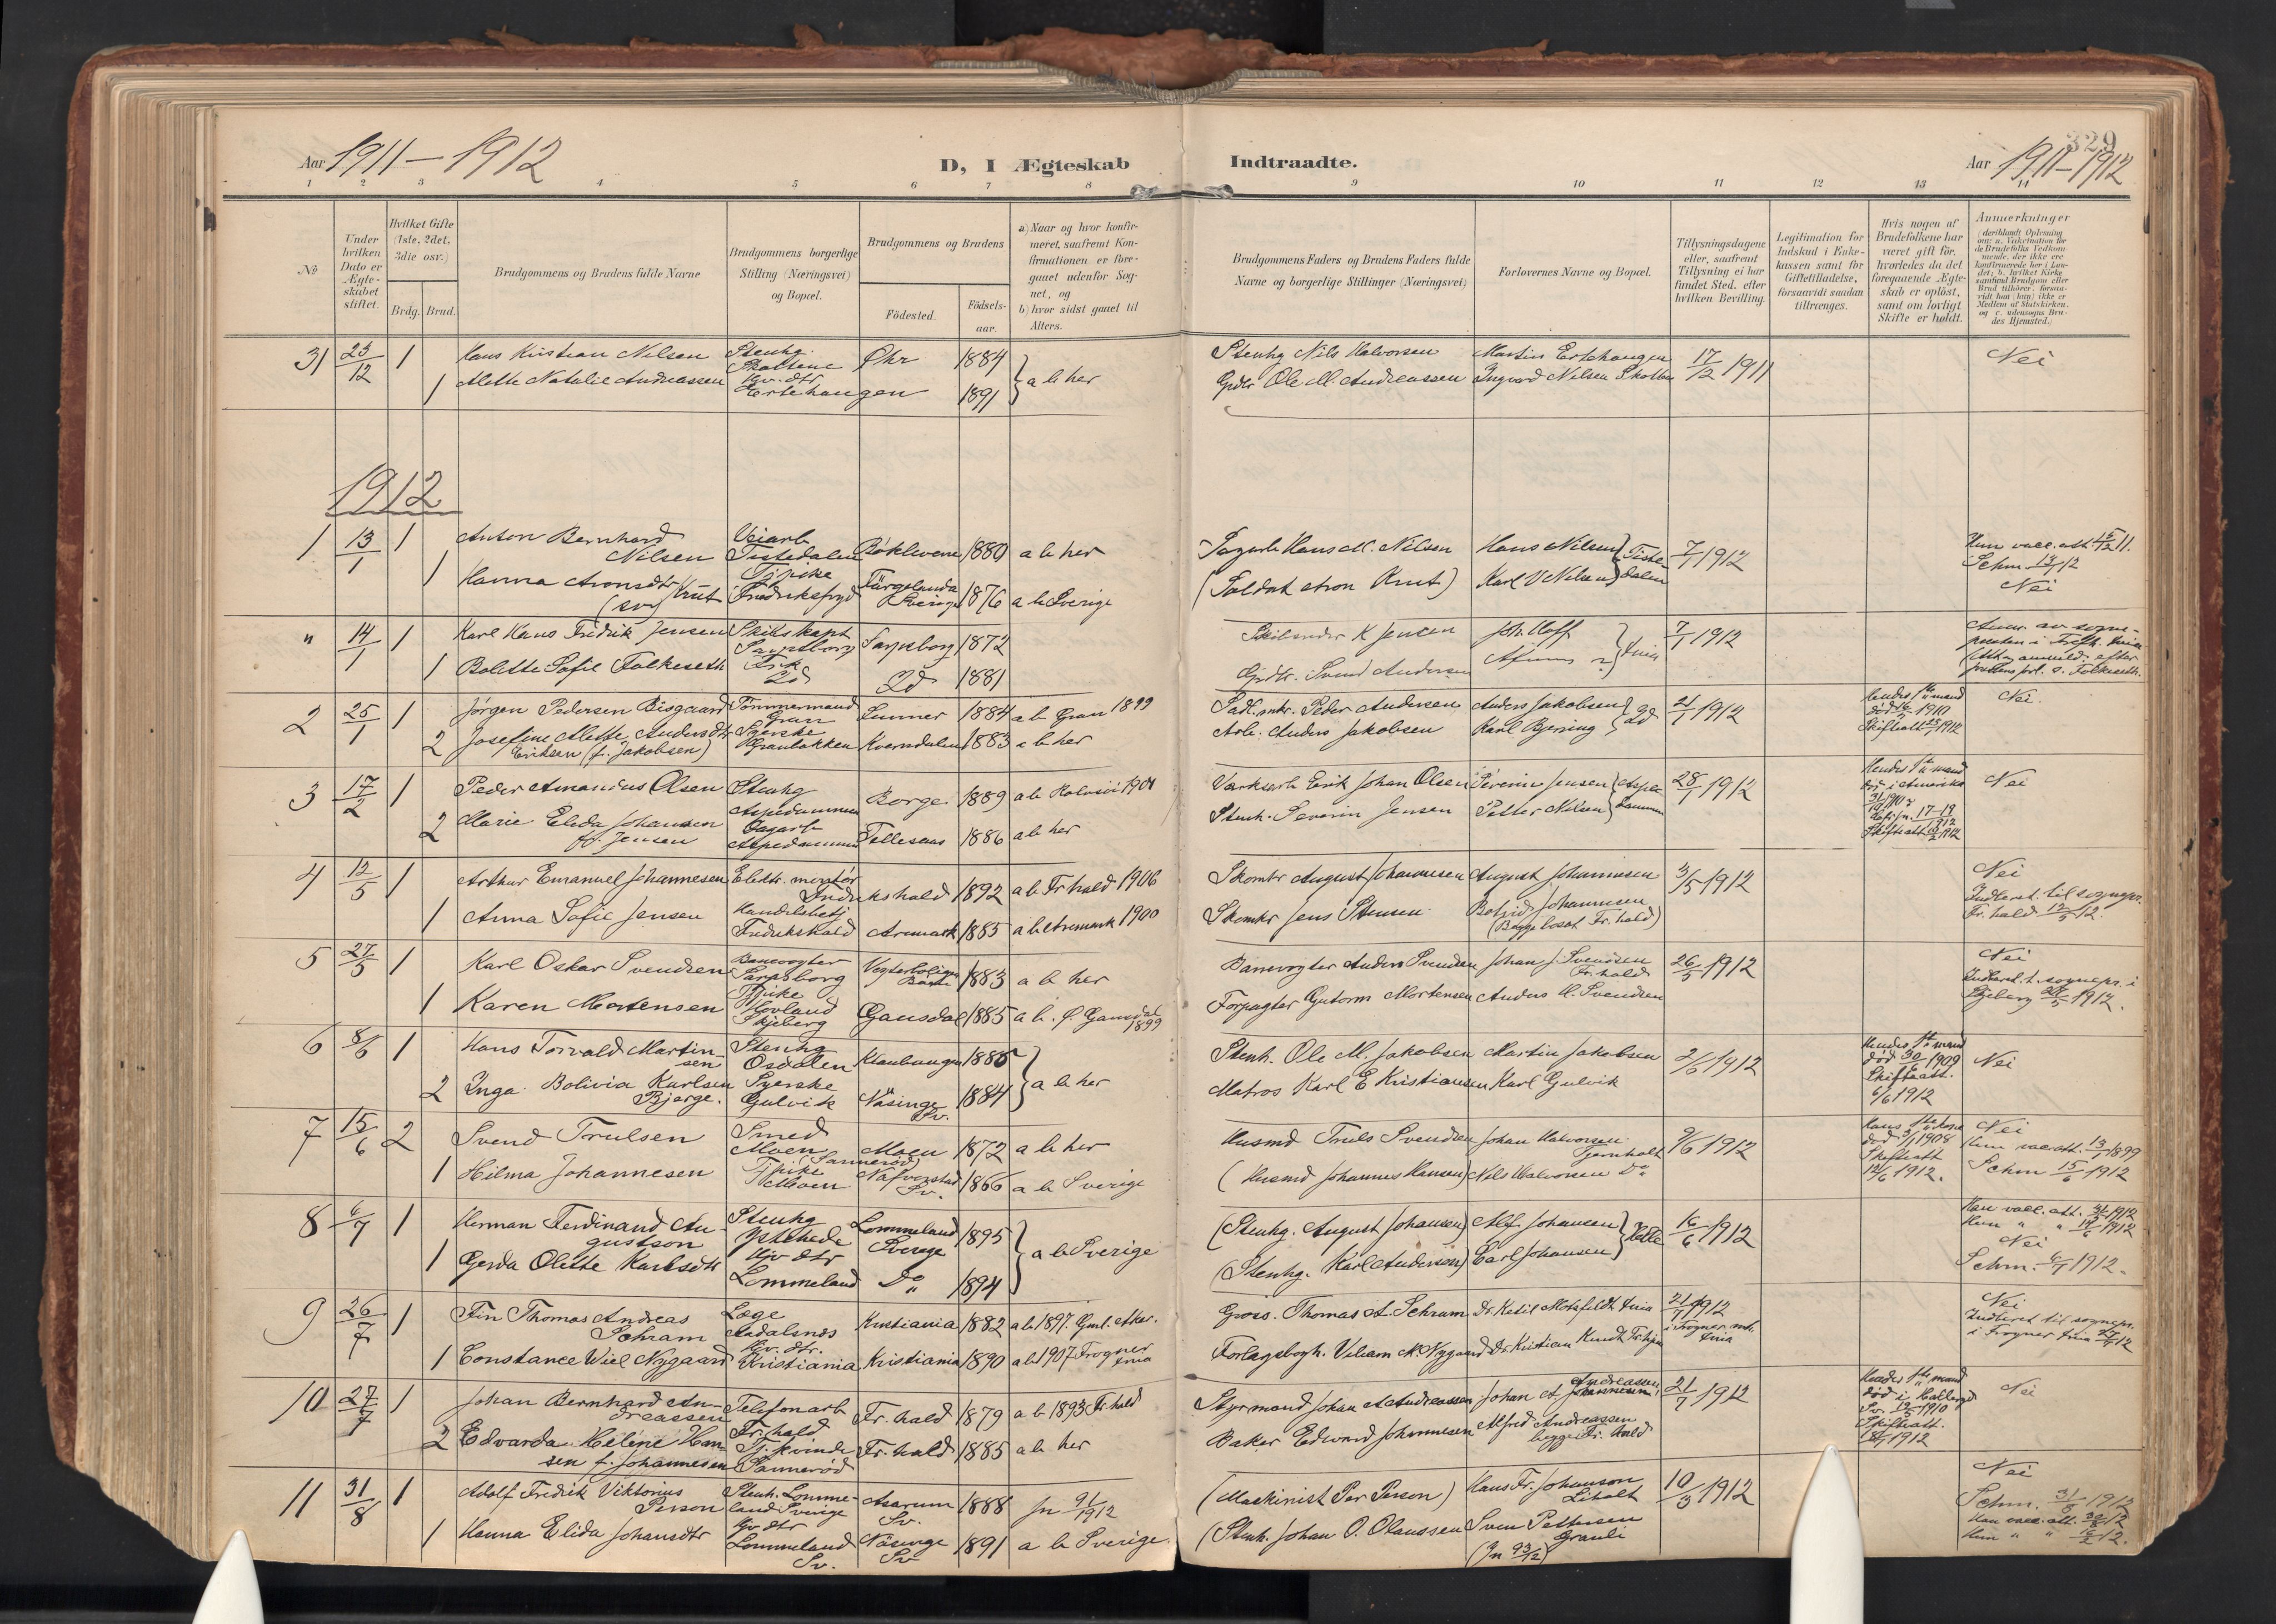 329
Aar 1911-1912
D, I Ægteskab Indtraadte.
Aar 1911-1912
1 2 3 4 5 6 7 8 9 10 11 12 13 14
No
Under hvilken Dato er Ægteskabet stiftet.
Hvilket Gifte (1ste, 2det, 3die osv.)
Brdg. Brud.
Brudgommens og Brudens fulde Navne
Brudgommens borgerlige Stilling (Næringsvei) og Bopæl.
Brudgommens og Brudens
Fødested.
Fødselsaar.
a) Naar og hvor konfirmeret, saafremt Konfirmationen er foregaaet udenfor Sognet, og
b) hvor sidst gaaet til Alters.
Brudgommens Faders og Brudens Faders fulde Navne og borgerlige Stillinger (Næringsvei)
Forlovernes Navne og Bopæl.
Tillysningsdagene eller, saafremt Tillysning ei har fundet Sted, efter hvilken Bevilling.
Legitimation for Indskud i Enkekassen samt for Giftetilladelse, forsaavidt saadan tiltrænges.
Hvis nogen af Brudefolkene har været gift før, hvorledes da det foregaaende Ægteskab er opløst, samt om lovligt Skifte er holdt.
Anmerkninger
31 23/12 1 Hans Kristian Nilsen Stenhg. Skottene Øhr 1884 Stenhg Nils Halvorsen Martin Ertehaugen 17/12 1911 Nei
1 Alette Natalie Andreassen Gv. dtr Ertehaugen 1891 a b her Gpdbr Ole M. Andreassen Ingvard Nilsen Skotten
1912
1 13/1 1 Anton Bernhard Nilsen Veiarb Tistedalen Bøklevene 1880 a b her Sagarb Hans M. Nilsen Hans Nilsen Tistedalen 7/1 1912
1 Hanna Aronsdtr Krut Tjpike Fredriksfryd Färgelanda Sverige 1876 a b Sverige (Soldat Aron Krut) Karl V Nilsen Nei
" 14/1 1 Karl Hans Fredrik Jensen Skibskapt Sarpsborg Sarpsborg 1872 K Jensen Joh. Hoff 7/1 1912
1 Bolette Sofie Folkeseth Frk Do Do 1881 Gprdbr. Svend Andersen
2 25/1 1 Jørgen Pedersen Bisgaard Tømmermand Gran Lunner 1884 a b Gran 1899 Sadl.mkr. Peder Andersen Anders Jakobsen Do 21/1 1912 Hendes 1ste mand død 1910 Nei.
2 Josefine Alette Andersdtr Eriksen (f. Jakobsen) Syerske Granløkken Kverndalen 1883 a b her Arb. Anders Jakobsen Karl Bjerring
3 17/2 1 Peder Amandus Olsen Stenhg Aspedammen Borge 1889 a b Rolvsøi 1904 Værksarb Erik Johan Olsen Severin Jensen Aspedammen 28/1 1912 Hendes 1ste mand død i Amerika Nei
2 Marie Elida Johansen f. Jensen Aspedammen 1886 a b her Stenh. Severin Jensen Petter Nilsen
4 12/5 1 Arthur Emanuel Johannesen Elektr. montør Fredrikshald 1892 a b Fr hald 1906 Skomkr August Johannesen August Johannesen 3/5 1912 Nei
1 Anna Sofie Jensen Handelsbetj Fredrikshald Aremark 1885 a b Aremark 1900 Skomkr Jens Stensen Johannesen (Begge bosat Fr. hald) Indberet. til sognepr. Fr. hald 12/5 12.
5 27/5 1 Karl Oskar Svendsen Banevogter Sarpsborg 1883 a b her Banevogter Anders Svendsen Johan J. Svendsen Fr.hald 26/5 1912 Nei
1 Karen Mortensen Tjpike Hovland Skjeberg Gausdal 1885 a b. f. Gausdal 1899 Forpagter Gutorm Mortensen Anders M. Svendsen Indberet. t. sognepr. i Skjeberg 27/5 1912.
6 8/6 1 Hans Torvald Martinsen Stenhg Osdalen Klauhaugen 1885 a b her Stenh. Ole M. Jakobsen Martin Jakobsen 2/6 1912 Hendes 1ste mand død 30/6 1909 Skifteatt. 6/6 1912 Nei
2 Inga Bolivia Karlsen Bjørge. Syerske Gulvik Näsinge Sv. 1884 Matros Karl E Kristiansen Karl Gulvik
7 15/6 2 Svend Trulsen Smed Moen Moen 1872 a b her Husmd Truls Svendsen Johan Halvorsen Tjernholt 9/6 1912 Hans 1ste kone død 1908 Skifteatt 1912. Nei
1 Hilma Johannesen Tjpike Moen Nafverstad Sv. 1866 a b Sverige (Husmd Johannes Hansen) Nils Halvorsen Do Schm 15/6 1912
8 6/7 1 Herman Ferdinand Augustson Stenhg Ystehede Lommeland Sverige 1895 a b Sverige (Stenhg. August Johansen) Alf Johansen 16/6 1912 Nei
1 Gerda Olette Karlsdtr Gv dtr Lommeland Do 1894 (Stenhg. Karl Andersen) Carl Johansen Schm. 6/7 1912.
9 26/7 1 Fin Thomas Andreas Schram Læge Aandalsnes Kristiania 1882 a b 1897. Gml. Aker. Gross. Thomas A. Schram Dr. Ketil Motzfeldt Kria 21/7 1912 i Frogner mh. Kria Nei
1 Constance Wiel Nygaard Gv. dtr. Kristiania Kristiania 1890 a b 1907 Frogner Kria Forlagsbogh. Viliam M. Nygaard Dr. Kristian Indberet til sognepr. i Frogner Kria
10 27/7 1 Johan Bernhard Andreassen Telefonarb Fr. hald Fr. hald 1879 a b 1893 Fr. hald Styrmand Johan A Andreassen Johan A. Andreassen 21/7 1912 Hendes 1ste mand død i Sv. 1910 Skifteatt. 1912 Nei
2 Edvarda Helene Hansen f. Johannesen Tj. kvinde Sannerød Fr. hald 1885 a b her Baker Edvard Johannesen Alfred Andreassen begge Fr. hald
11 31/8 1 Adolf Fredrik Viktorius Person Stenh. Lommeland Sverige Asarum Sv. 1888 Jn 91/1912 (Maskinist Per Person) Hans Fr. Johanson Liholt 10/3 1912 Nei
1 Hanna Elida Johansdtr Gv dtr Lommeland Sv. Näsinge Sv 1891 a b Sverige (Stenh. Johan O. Olaussen Sven Pettersen Grauli (Jn 93/12) Schm. 31/8 1912